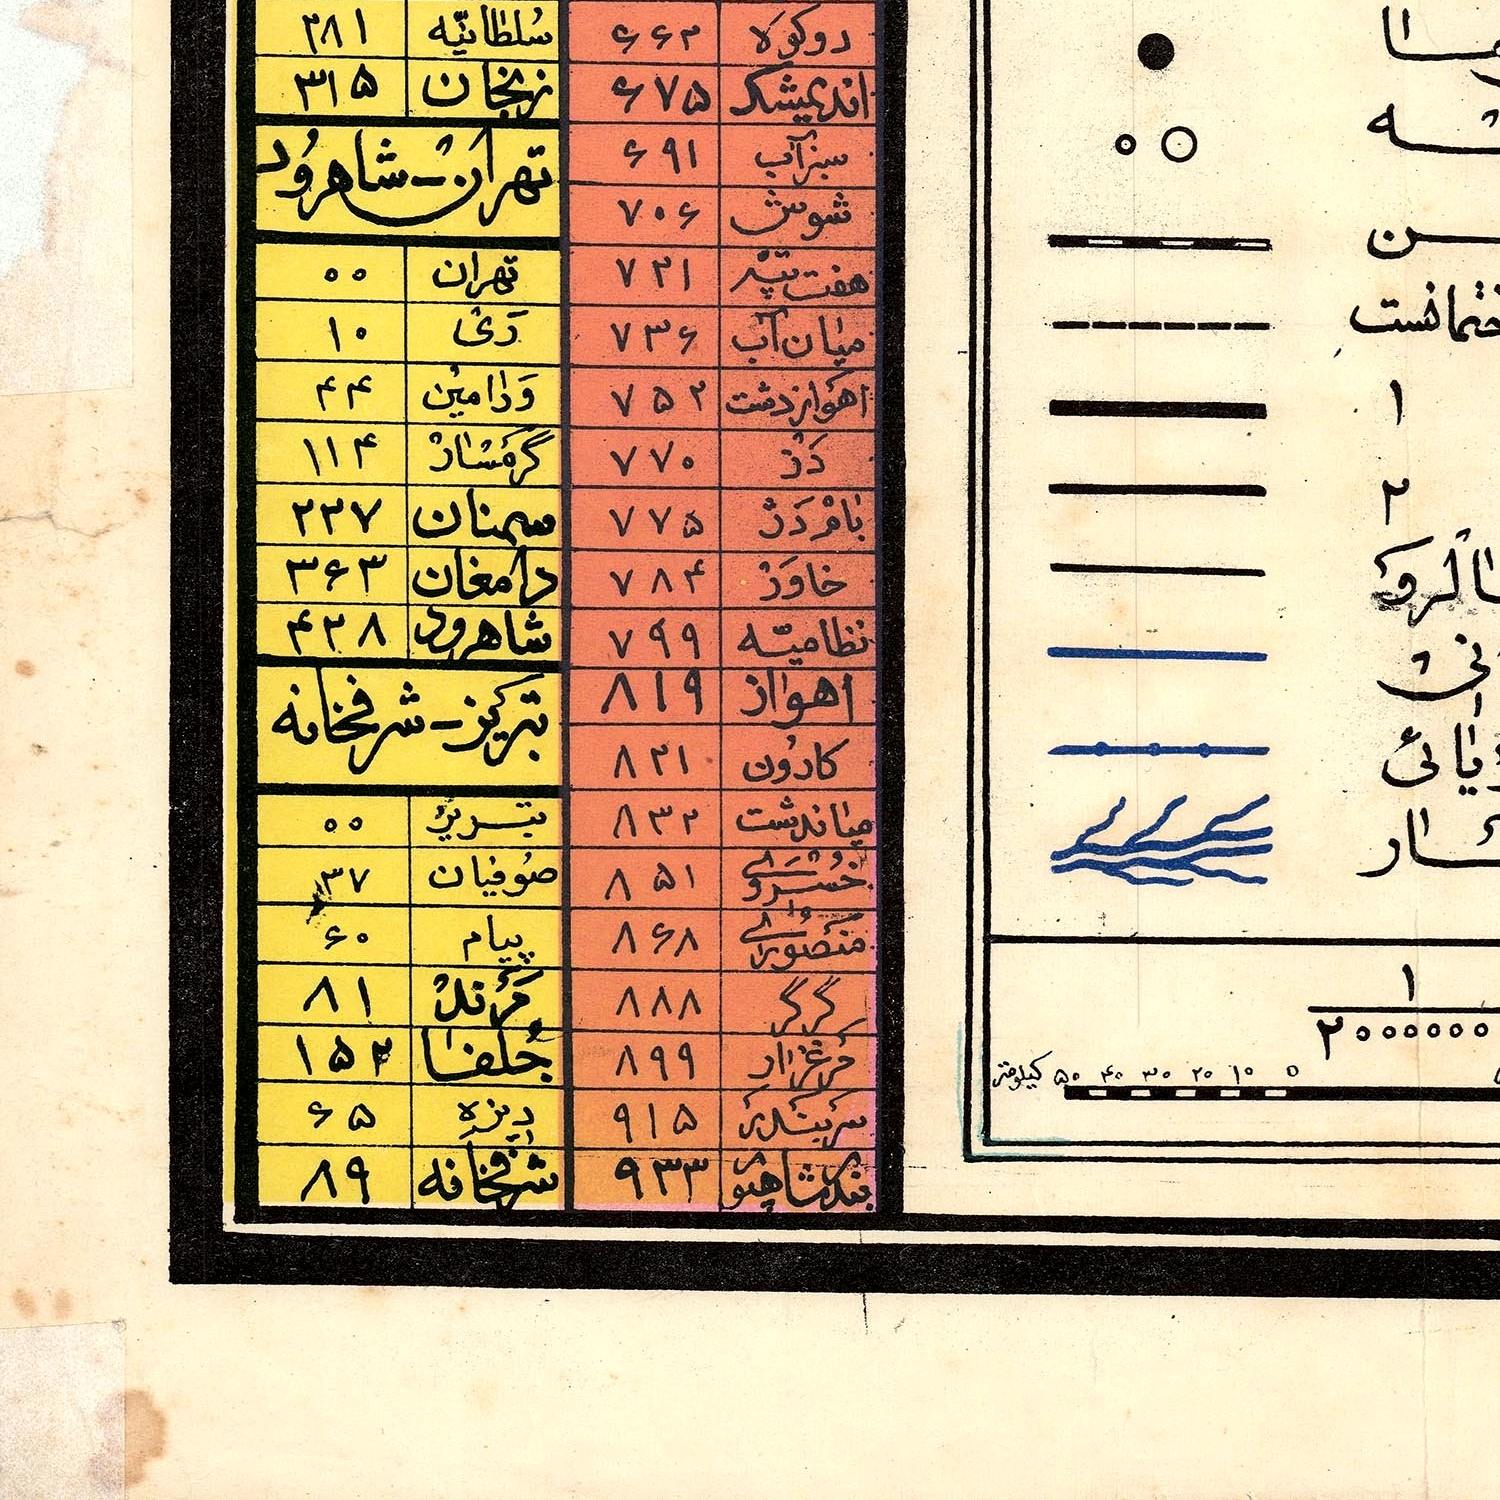 دوکوه ۶۶۲
اندیمشک ۶۷۵
سبزآب ۶۹۱
شوش ۷۰۶
هفت‌تپه ۷۲۱
میان‌آب ۷۳۶
اهوازدشت ۷۵۲
دز ۷۷۰
بامدز ۷۷۵
خاور ۷۸۴
نظامیه ۷۹۹
اهواز ۸۱۹
کارون ۸۲۱
میاندشت ۸۳۲
خسروی ۸۵۱
منصوری ۸۶۸
گرگر ۸۸۸
مرغزار ۸۹۹
سربندر ۹۱۵
بندرشاهپور ۹۳۳
سلطانیّه ۲۸۱
زنجان ۳۱۵
تهران-شاهرود
تهران ۰۰
ری ۱۰
ورامین ۴۴
گرمسار ۱۱۴
سمنان ۲۲۷
دامغان ۳۶۳
شاهرود ۴۲۸
تبریز-شرفخانه
تبریز ۰۰
صوفیان ۳۷
پیام ۶۰
مرند ۸۱
جلفا ۱۵۲
دیزه ۶۵
شرفخانه ۸۹
۱
۲
۱
۲۰۰۰۰۰۰
کیلومتر ۵۰ ۴۰ ۳۰ ۲۰ ۱۰ ۰